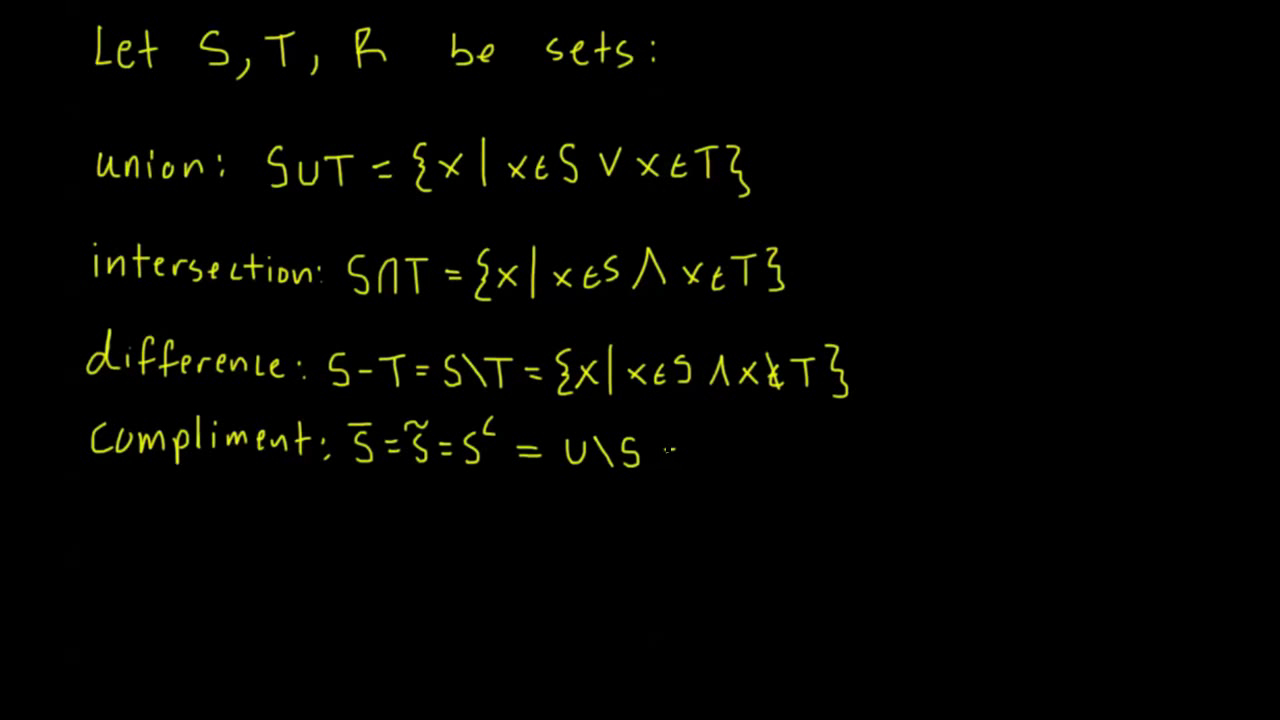 Let S, T, R be sets:
union: S∪T = {x | x∈S ∨ x∈T}
intersection: S∩T = {x | x∈S ∧ x∈T}
difference: S-T = S\T = {x | x∈S ∧ x∉T}
Compliment: S̅ = S̃ = Sᶜ = U\S